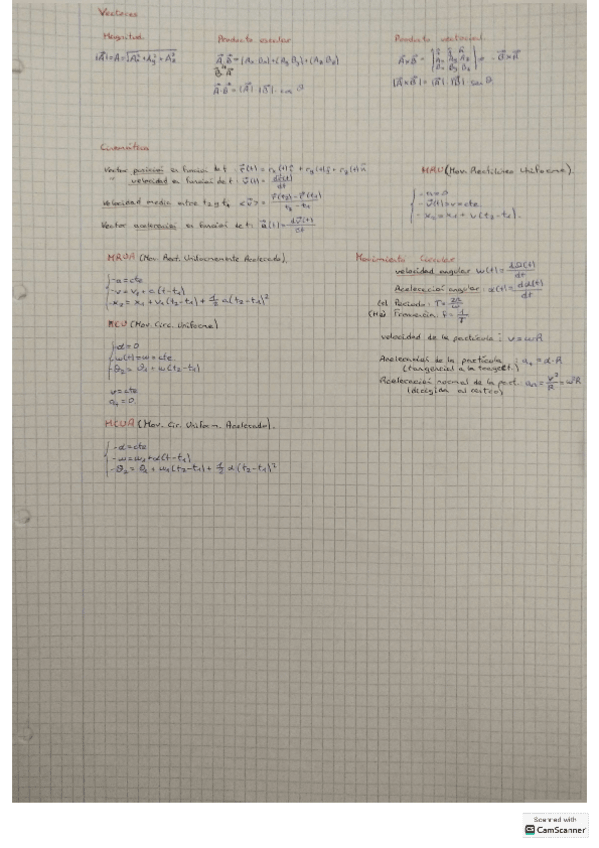 Vectores
Magnitud
|A⃗|=A=√(Ax²+Ay²+Az²)
Producto escalar
A⃗·B⃗=(Ax·Bx)+(Ay·By)+(Az·Bz)
B⃗·A⃗
A⃗·B⃗=|A⃗|·|B⃗|·cos θ
Producto vectorial
A⃗×B⃗ = | î ĵ k̂ | Ax Ay Az | Bx By Bz | = -B⃗×A⃗
|A⃗×B⃗|=|A⃗|·|B⃗|·sen θ
Cinemática
Vector posición en función de t: r⃗(t)=rx(t)î+ry(t)ĵ+rz(t)k̂
" velocidad en función de t: v⃗(t)= dr⃗(t)/dt
Velocidad media entre t2 y t1
Vector aceleración en función de t: a⃗(t)= dv⃗(t)/dt
MRU (Mov. Rectilíneo Uniforme).
-a=0
-v⃗(t)=v=cte
-x2=x1+v(t2-t1).
MRUA (Mov. Rect. Uniformemente Acelerado).
-a=cte
-v=v1+a(t-t1)
-x2=x1+v1(t2-t1)+1/2 a(t2-t1)²
MCU (Mov. Circ. Uniforme)
-α=0
-ω(t)=ω=cte
-θ2=θ1+ω(t2-t1)
v=cte
at=0.
MCUA (Mov. Cir. Uniform. Acelerado).
-α=cte
-ω=ω1+α(t-t1)
-θ2=θ1+ω1(t2-t1)+1/2 α(t2-t1)²
Movimiento Circular
velocidad angular ω(t)= dθ(t)/dt
Aceleración angular: α(t)= dω(t)/dt
(s) Periodo: T= 2π/ω
(Hz) Frecuencia: f= 1/T
velocidad de la partícula: v=ωR
de la partícula: at=α·R
(tangencial a la trayect.)
Aceleración normal de la part: an= v²/R =ω²R
(dirigida al centro)
Scanned with
CamScanner